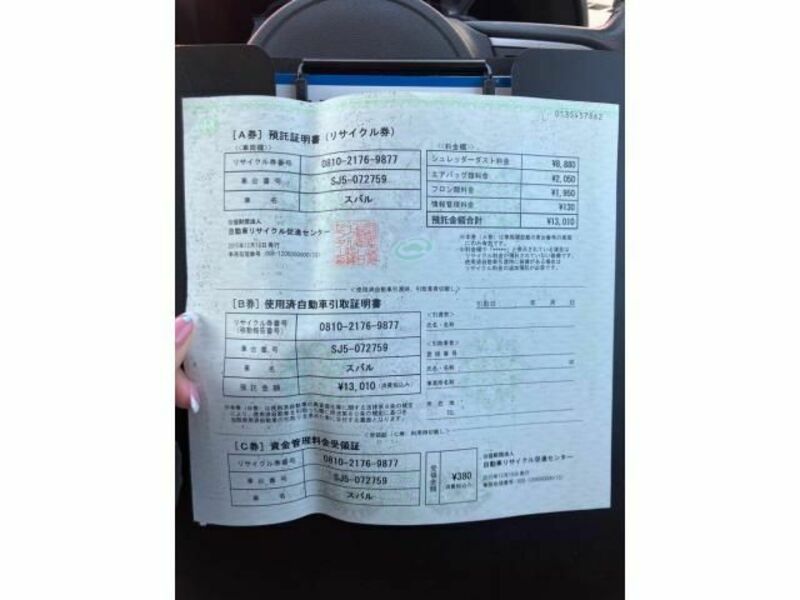 0135457862
[A券] 預託証明書(リサイクル券)
<<車両欄>>
リサイクル券番号 0810-2176-9877
車台番号 SJ5-072759
車名 スバル
公益財団法人
自動車リサイクル促進センター
<<料金欄>>
シュレッダーダスト料金 ¥8,880
エアバッグ類料金 ¥2,050
フロン類料金 ¥1,950
情報管理料金 ¥130
預託金額合計 ¥13,010
[B券] 使用済自動車引取証明書
リサイクル券番号
(移動報告番号) 0810-2176-9877
車台番号 SJ5-072759
車名 スバル
預託金額 ¥13,010 (消費税込み)
引取日: 年 月 日
<引渡者>
氏名・名称
<引取業者>
登録番号
氏名・名称
事業所名称
所在地
TEL
[C券] 資金管理料金受領証
リサイクル券番号 0810-2176-9877
車台番号 SJ5-072759
車名 スバル
受領金額 ¥380
(消費税込み)
公益財団法人
自動車リサイクル促進センター